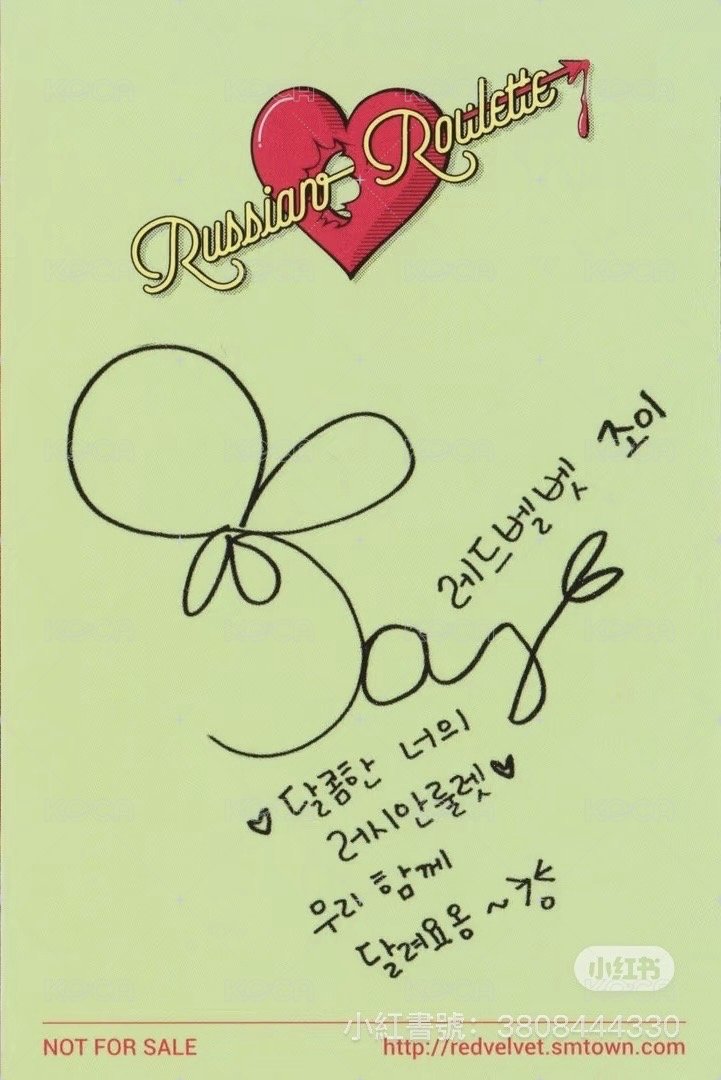 Russian Roulette
Joy
레드벨벳 조이
♥ 달콤한 너의
러시안룰렛 ♥
우리 함께
달려요옹 ~
小红书
小紅書號：3808444330
NOT FOR SALE
http://redvelvet.smtown.com
KOCA